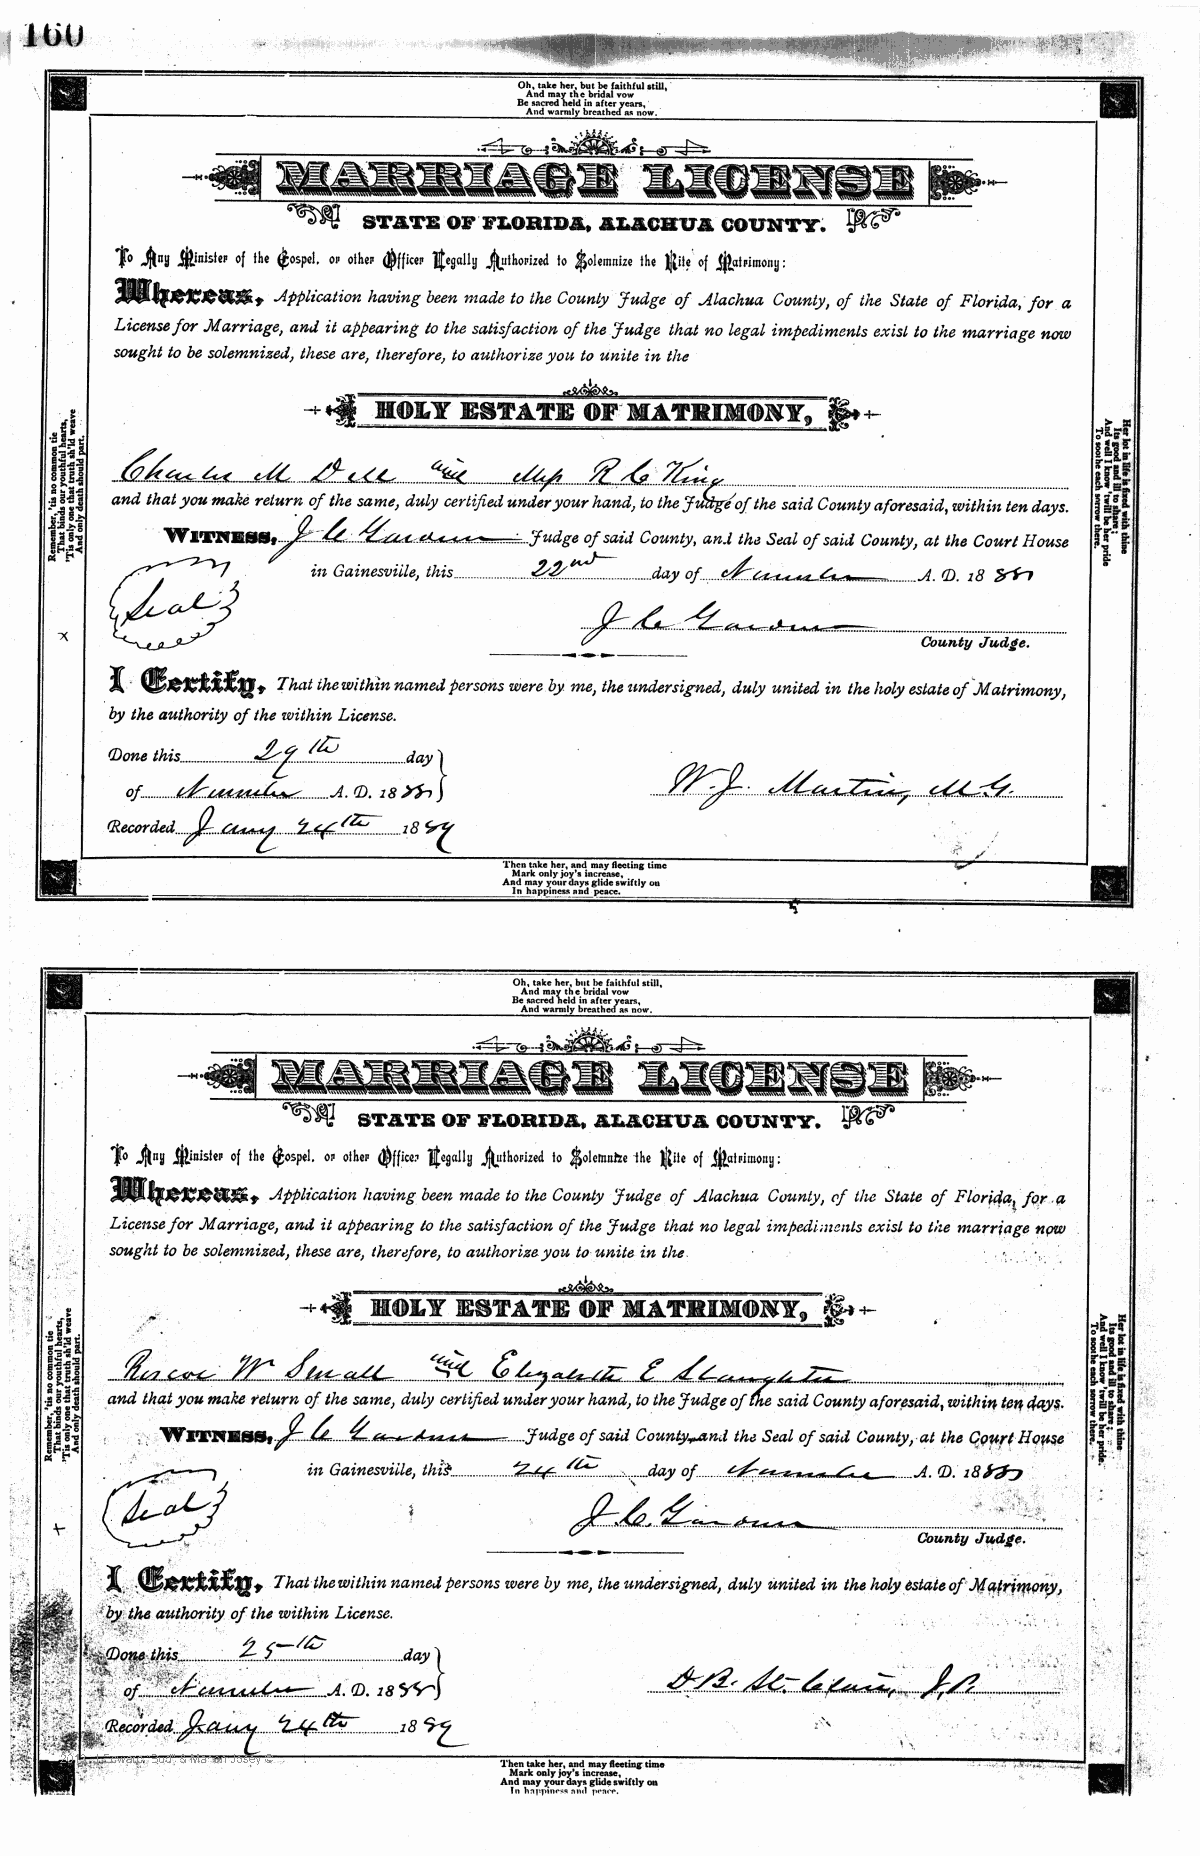 160
Oh, take her, but be faithful still,
And may the bridal vow
Be sacred held in after years,
And warmly breathed as now.
MARRIAGE LICENSE
STATE OF FLORIDA, ALACHUA COUNTY.
To Any Minister of the Gospel, or other Officer Legally Authorized to Solemnize the Rite of Matrimony:
Whereas, Application having been made to the County Judge of Alachua County, of the State of Florida, for a
License for Marriage, and it appearing to the satisfaction of the Judge that no legal impediments exist to the marriage now
sought to be solemnized, these are, therefore, to authorize you to unite in the
HOLY ESTATE OF MATRIMONY,
Charles M Dell and R C King
and that you make return of the same, duly certified under your hand, to the Judge of the said County aforesaid, within ten days.
WITNESS, J C Gardner Judge of said County, and the Seal of said County, at the Court House
in Gainesville, this 22nd day of November A. D. 1888
Seal
J C Gardner
County Judge.
I Certify, That the within named persons were by me, the undersigned, duly united in the holy estate of Matrimony,
by the authority of the within License.
Done this 29th day
of November A. D. 1888
W. J. Martin, M.G.
Recorded Jany 24th 1889
Then take her, and may fleeting time
Mark only joy's increase,
And may your days glide swiftly on
In happiness and peace.
Remember, 'tis no common tie
That binds our youthful hearts,
'Tis only one that truth sh'ld weave
And only death should part.
Her lot in life is fixed with thine
Its good and ill to share;
And well I know 'twill be her pride
To soothe each sorrow there.
Oh, take her, but be faithful still,
And may the bridal vow
Be sacred held in after years,
And warmly breathed as now.
MARRIAGE LICENSE
STATE OF FLORIDA, ALACHUA COUNTY.
To Any Minister of the Gospel, or other Officer Legally Authorized to Solemnize the Rite of Matrimony:
Whereas, Application having been made to the County Judge of Alachua County, of the State of Florida, for a
License for Marriage, and it appearing to the satisfaction of the Judge that no legal impediments exist to the marriage now
sought to be solemnized, these are, therefore, to authorize you to unite in the
HOLY ESTATE OF MATRIMONY,
Roscoe W Small and Elizabeth E Slaughter
and that you make return of the same, duly certified under your hand, to the Judge of the said County aforesaid, within ten days.
WITNESS, J C Gardner Judge of said County, and the Seal of said County, at the Court House
in Gainesville, this 24th day of November A. D. 1888
Seal
J. C. Gardner
County Judge.
I Certify, That the within named persons were by me, the undersigned, duly united in the holy estate of Matrimony,
by the authority of the within License.
Done this 25th day
of November A. D. 1888
D B. St. Clair, J.P
Recorded Jany 24th 1889
Then take her, and may fleeting time
Mark only joy's increase,
And may your days glide swiftly on
In happiness and peace.
Remember, 'tis no common tie
That binds our youthful hearts,
'Tis only one that truth sh'ld weave
And only death should part.
Her lot in life is fixed with thine
Its good and ill to share;
And well I know 'twill be her pride
To soothe each sorrow there.